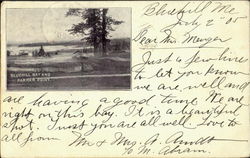 Bluehill Me
July 2" 05
Dear Mr.
Just a few lines
to let you know
we are well and
are having a good time. We are
right on this bay. It is a beautiful
spot. Trust you are all well. Love to
all from Mr & Mrs.
BLUEHILL BAY AND
PARKER POINT.